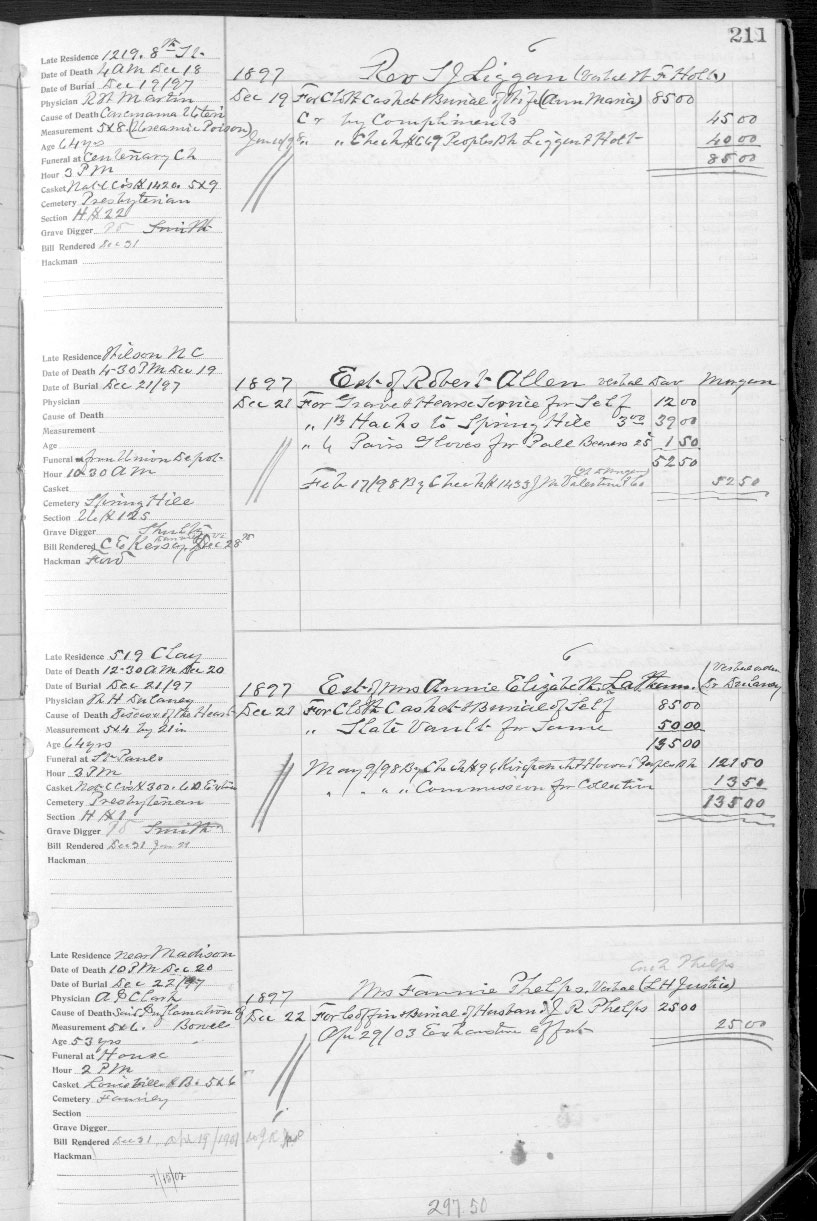 211
Late Residence 1219. 8th St.
Date of Death 4 AM Dec 18
Date of Burial Dec 19/97
Physician R W Martin
Cause of Death Carcenama Uteri
Measurement 5x8 (Uraemic Poison)
Age 64 yrs
Funeral at Centenary Ch
Hour 3 PM
Casket Nat C Co's # 1420. 5x9
Cemetery Presbyterian
Section H # 22
Grave Digger Smith
Bill Rendered Dec 31
Hackman
6
1897 Rev S J Liggan (Verbal W. F. Holt)
Dec 19 For Cloth Casket & Burial of Wife (Ann Maria) 85 00
Cr by Compliments 45 00
" " Check # 669 Peoples Bk Liggan & Holt 40 00
85 00
Late Residence Wilson N C
Date of Death 4-30 PM Dec 19
Date of Burial Dec 21/97
Physician
Cause of Death
Measurement
Age
Funeral from Union Depot
Hour 10-30 AM
Casket
Cemetery Spring Hill
Section # 125
Grave Digger
Bill Rendered C E Dec 28th
Hackman Ford
1897 Est of Robert Allen verbal Dav Morgan
Dec 21 For Grave & Hearse Service for Self 12 00
" 13 Hacks to Spring Hill 3 00 39 00
" 6 Pairs Gloves for Pall Bearers 25 1 50
52 50
Feb 17/98 By Check # 1433 J M 52 50
Late Residence 519 Clay
Date of Death 12-30 AM Dec 20
Date of Burial Dec 21/97
Physician W. H Dulaney
Cause of Death Disease of the Heart
Measurement 5x4 by 21 in
Age 64 yrs
Funeral at St Pauls
Hour 3 PM
Casket Nat C Co's # 300. 6.0
Cemetery Presbyterian
Section H # 1
Grave Digger Smith
Bill Rendered Dec 31 Jan 21
Hackman
6
1897 Est of Mrs Annie Elizabeth Latham. (Verbal order Dr Dulaney)
Dec 21 For Cloth Casket & Burial of Self 85 00
" Slate Vault for Same 50 00
135 00
May 9/98 By Check # 96 Peoples Bk 121 50
" " " " Commission for Collection 13 50
135 00
Late Residence near Madison
Date of Death 10 PM Dec 20
Date of Burial Dec 22/97
Physician A D Clark
Cause of Death Inflamation of
Measurement 5x6. Bowels
Age 53 yrs
Funeral at House
Hour 2 PM
Casket Louisville 5x6
Cemetery Family
Section
Grave Digger
Bill Rendered Dec 31.
Hackman
7/18/02
Phelps
1897 Mrs Fannie Phelps. Verbal (L H Justice)
Dec 22 For Coffin & Burial of Husband J R Phelps 25 00
Apr 29/03 Exhaustive effort 25 00
297.50